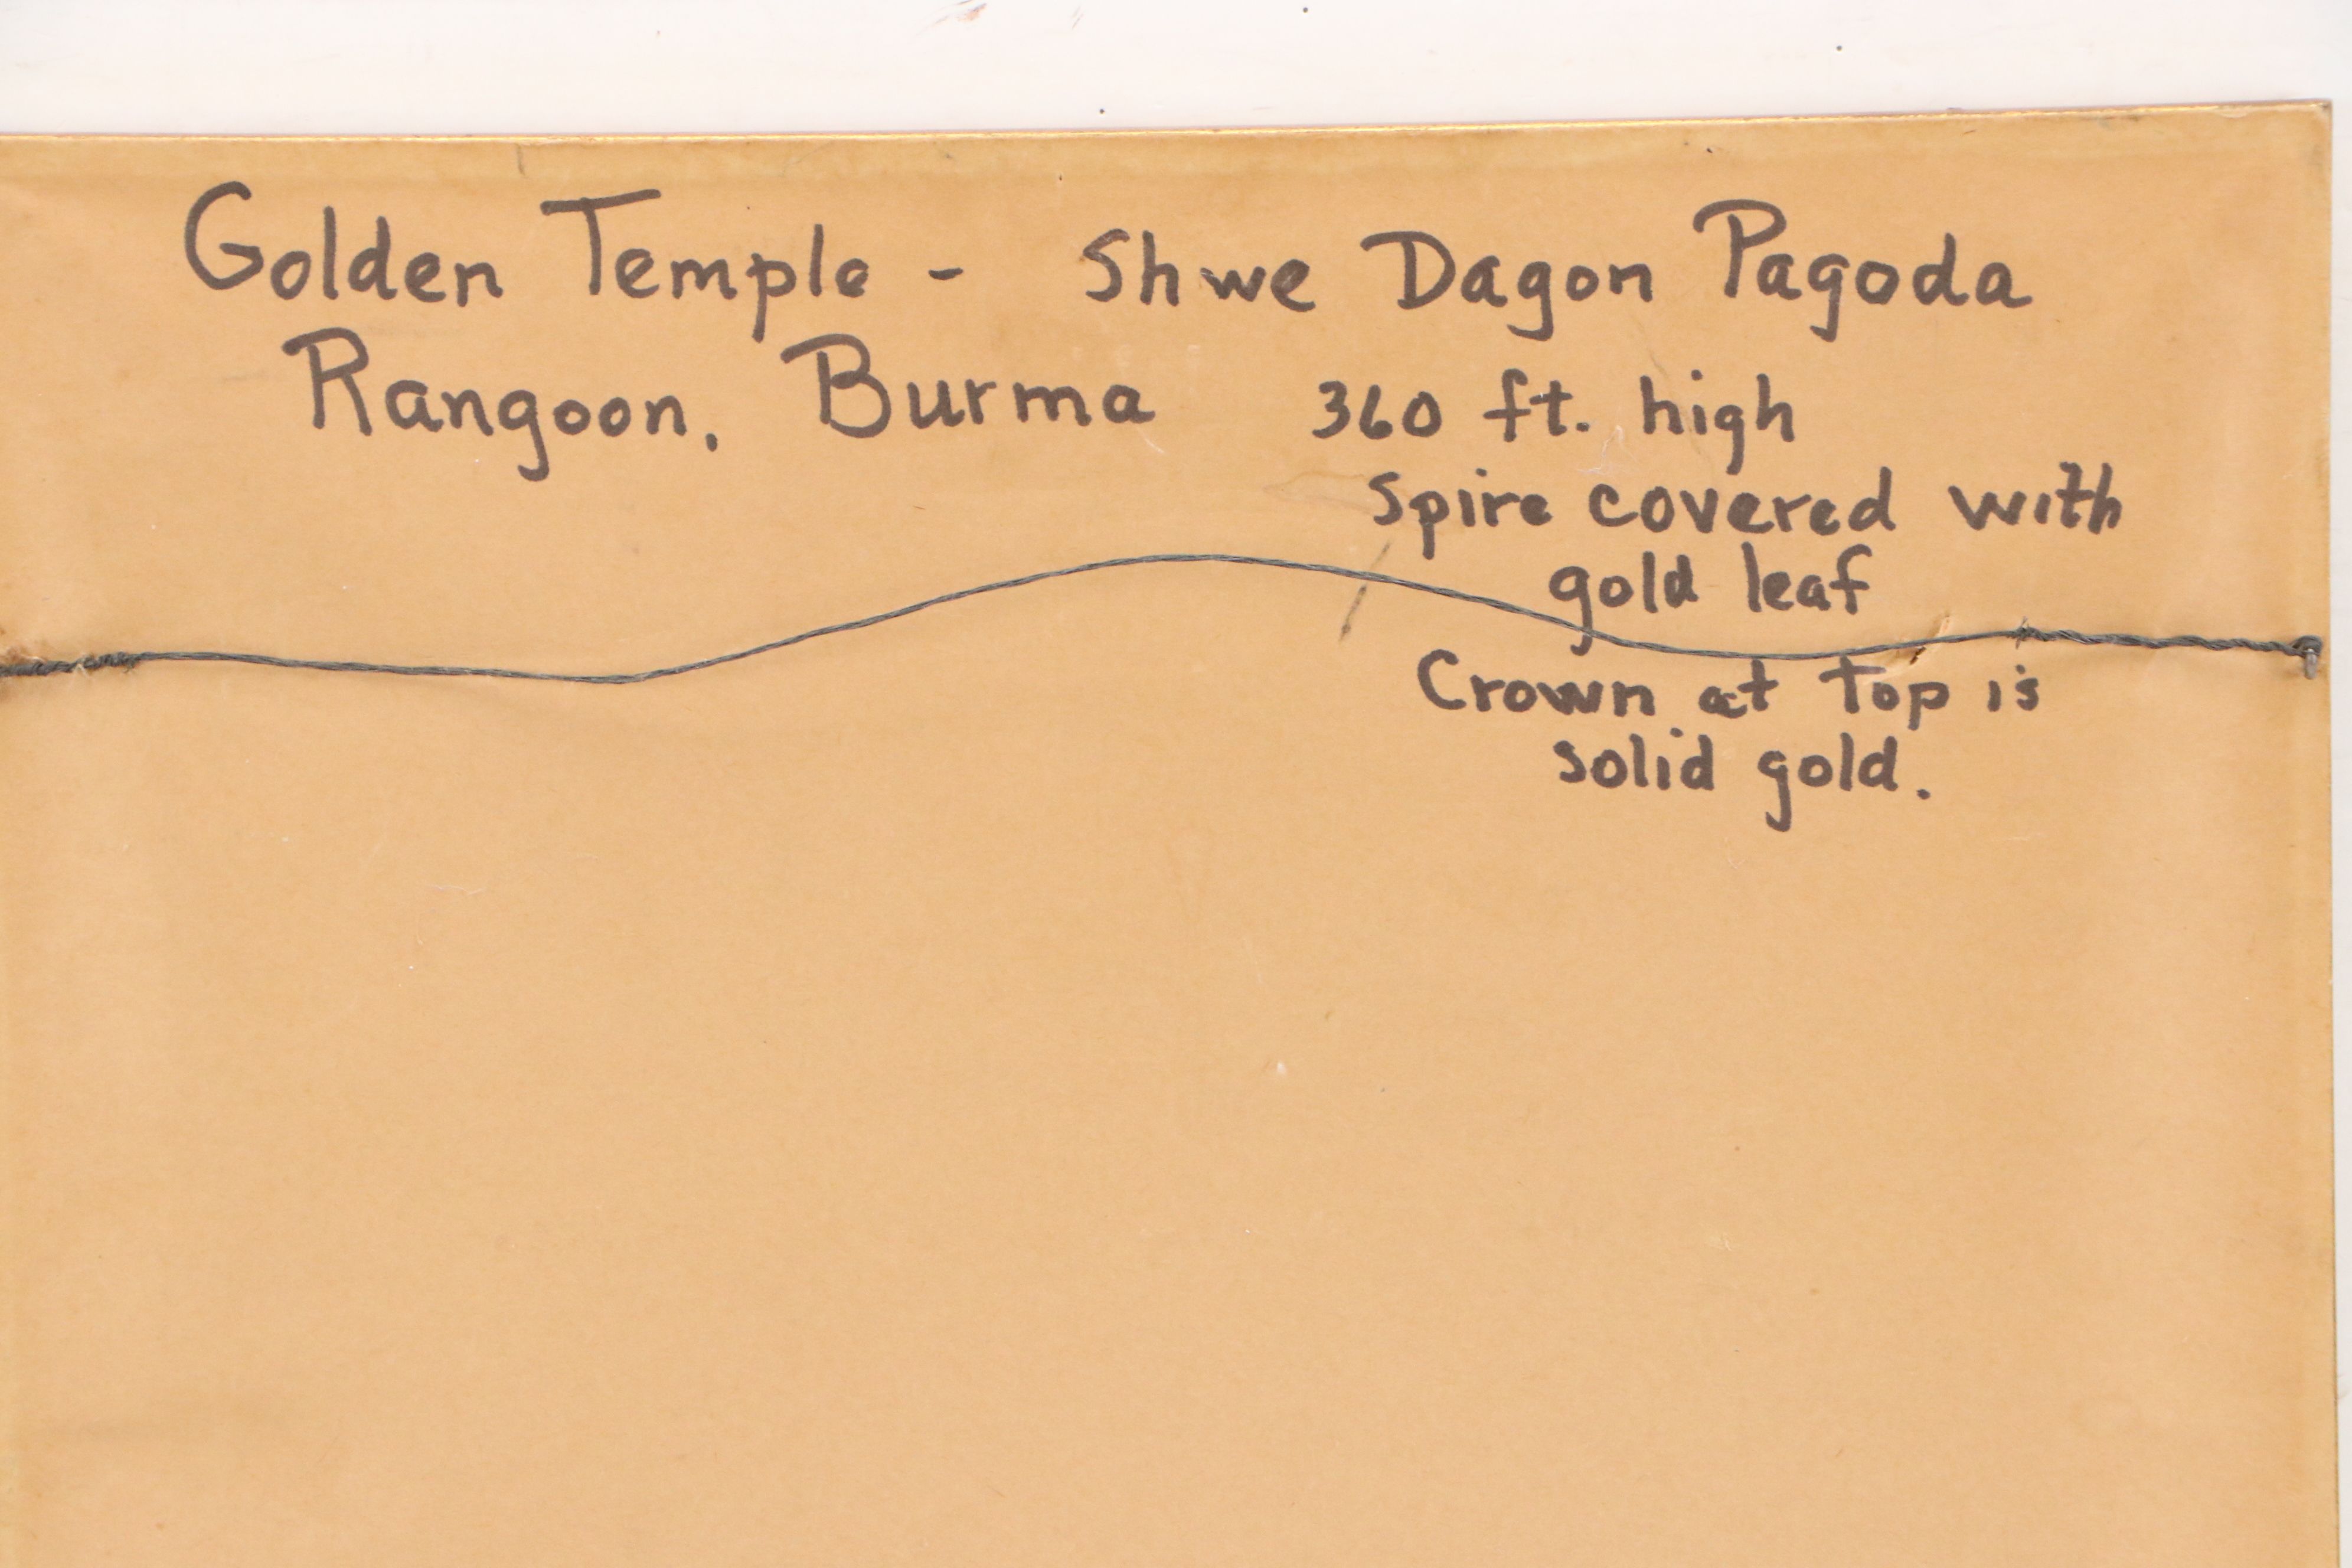 Golden Temple - Shwe Dagon Pagoda
Rangoon, Burma 360 ft. high
Spire covered with
gold leaf
Crown at top is
solid gold.